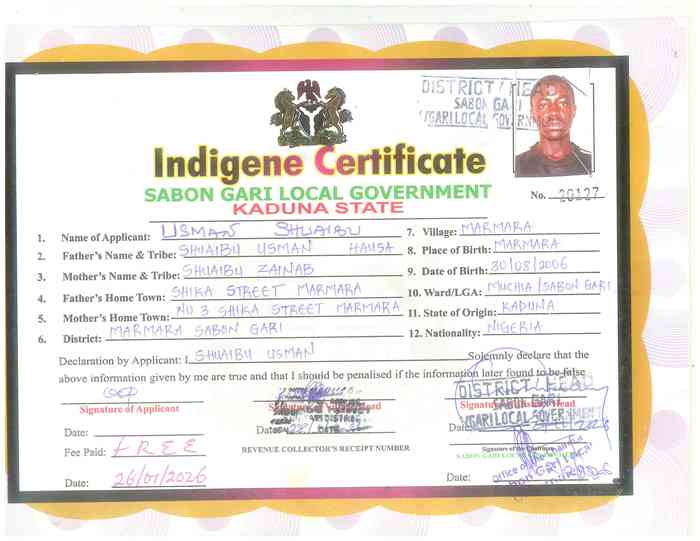 DISTRICT HEAD
SABON GARI
Indigene Certificate
SABON GARI LOCAL GOVERNMENT
KADUNA STATE
No. 20127
1. Name of Applicant: USMAN SHUAIBU
2. Father's Name & Tribe: SHUAIBU USMAN HAUSA
3. Mother's Name & Tribe: SHUAIBU ZAINAB
4. Father's Home Town: SHIKA STREET MARMARA
5. Mother's Home Town: NO 3 SHIKA STREET MARMARA
6. District: MARMARA SABON GARI
7. Village: MARMARA
8. Place of Birth: MARMARA
9. Date of Birth: 30/08/2006
10. Ward/LGA: MUCHIA/SABON GARI
11. State of Origin: KADUNA
12. Nationality: NIGERIA
Declaration by Applicant: I SHUAIBU USMAN Solemnly declare that the
above information given by me are true and that I should be penalised if the information later found to be false
Signature of Applicant
Date:
Fee Paid: FREE
Date: 26/01/2026
Head
Date
REVENUE COLLECTOR'S RECEIPT NUMBER
DISTRICT HEAD
SABON GARI
Head
Signature of the
SABON GARI
Date: